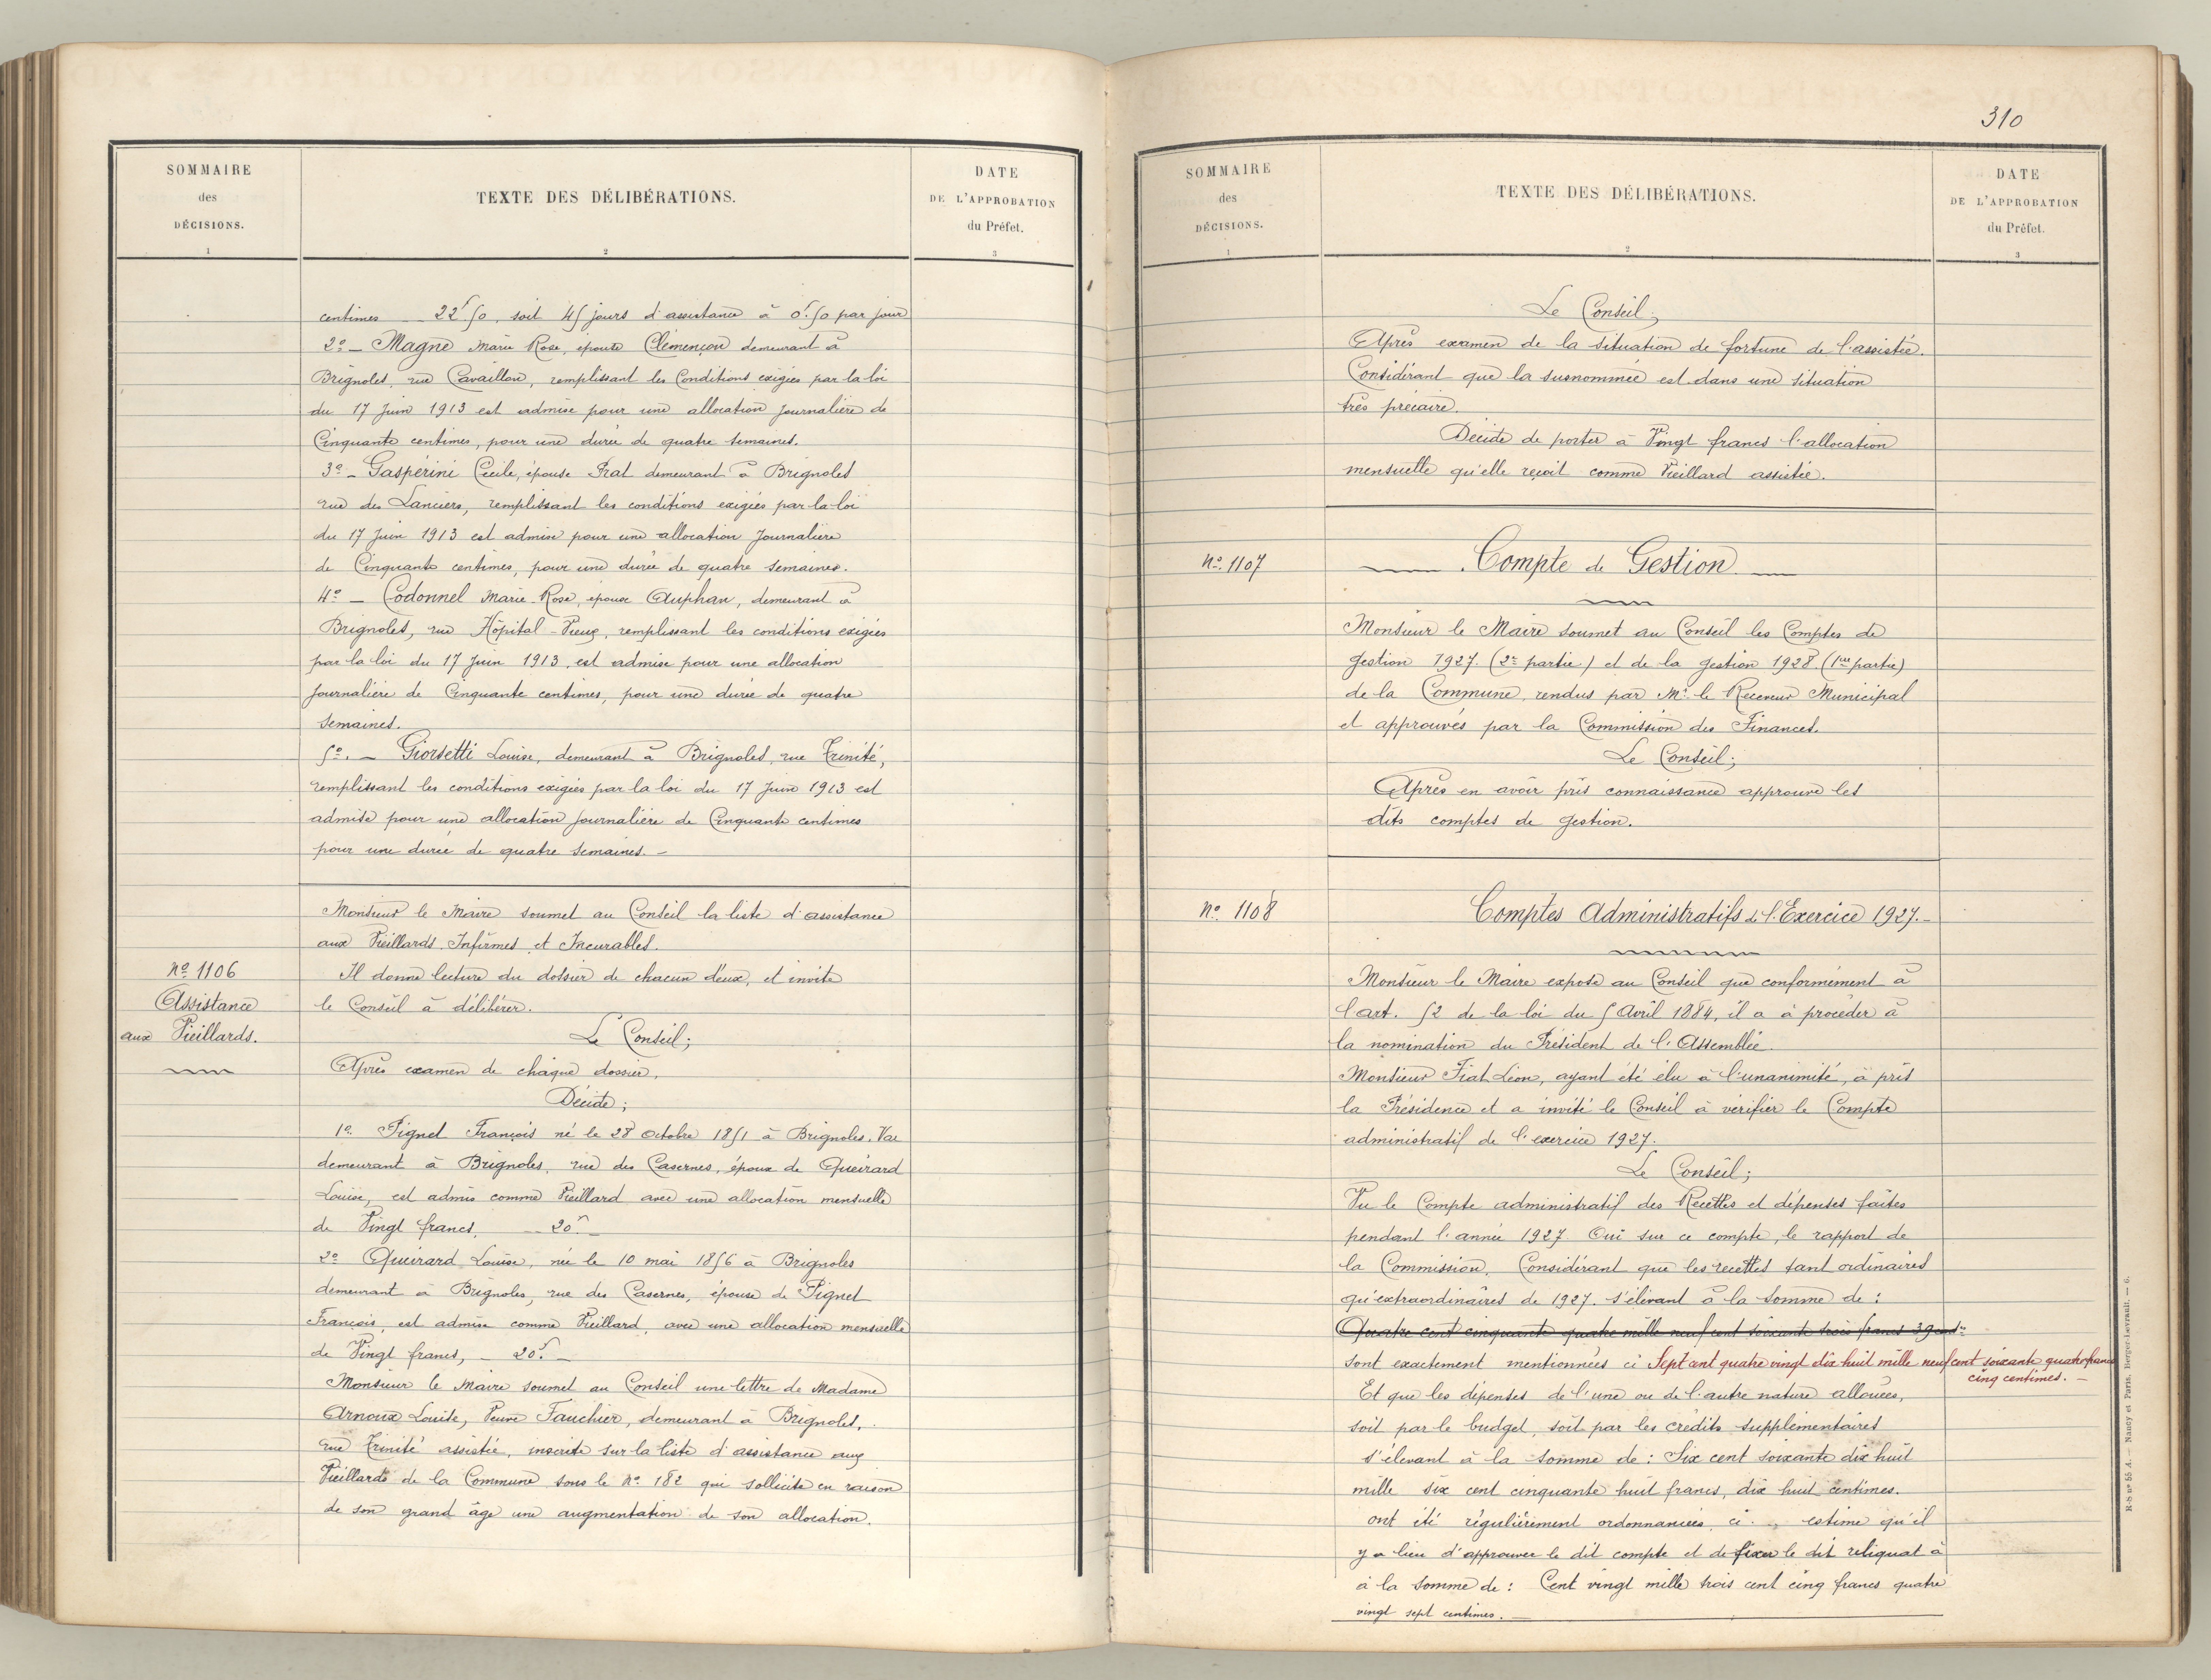 SOMMAIRE
des
DÉCISIONS.
1
TEXTE DES DÉLIBÉRATIONS.
2
DATE
DE L'APPROBATION
du Préfet.
3
centimes _ 22f.50, soit 45 jours d'assistance à 0f.50 par jour
2º _ Magne Marie Rose, épouse Clémençon demeurant à
Brignoles, rue Cavaillon, remplissant les Conditions exigées par la loi
du 17 Juin 1913 est admise pour une allocation Journalière de
Cinquante centimes, pour une durée de quatre semaines.
3º _ Gaspérini Cécile, épouse Prat demeurant à Brignoles
rue des Lanciers, remplissant les conditions exigées par la loi
du 17 Juin 1913 est admise pour une allocation Journalière
de Cinquante centimes, pour une durée de quatre semaines.
4º _ Codonnel Marie-Rose, épouse Auphan, demeurant à
Brignoles, rue Hôpital-Vieux, remplissant les conditions exigées
par la loi du 17 Juin 1913, est admise pour une allocation
Journalière de Cinquante centimes, pour une durée de quatre
semaines.
5º. _ Giorsetti Louise, demeurant à Brignoles, rue Trinité,
remplissant les conditions exigées par la loi du 17 Juin 1913 est
admise pour une allocation Journalière de Cinquante centimes
pour une durée de quatre semaines. _
Monsieur le Maire soumet au Conseil la liste d'assistance
aux Vieillards Infirmes et Incurables.
Nº 1106
Assistance
aux Vieillards.
Il donne lecture du dossier de chacun d'eux, et invite
le Conseil à délibérer.
Le Conseil;
Après examen de chaque dossier,
Décide;
1º Pignet François né le 28 octobre 1851 à Brignoles, Var
demeurant à Brignoles, rue des Casernes, époux de Queirard
Louise, est admis comme Vieillard avec une allocation mensuelle
de Vingt francs, _ 20f. _
2º Queirard Louise, née le 10 mai 1856 à Brignoles
demeurant à Brignoles, rue des Casernes, épouse de Pignet
François, est admise comme Vieillard, avec une allocation mensuelle
de Vingt francs, _ 20f. _
Monsieur le Maire soumet au Conseil une lettre de Madame
Arnoux Louise, Veuve Fauchier, demeurant à Brignoles,
rue Trinité assistée, inscrite sur la liste d'assistance aux
Vieillards de la Commune sous le Nº 182 qui sollicite en raison
de son grand âge une augmentation de son allocation.
310
SOMMAIRE
des
DÉCISIONS.
1
TEXTE DES DÉLIBÉRATIONS.
2
DATE
DE L'APPROBATION
du Préfet.
3
Le Conseil;
Après examen de la situation de fortune de l'assistée.
Considérant que la susnommée est dans une situation
très précaire.
Décide de porter à Vingt francs l'allocation
mensuelle qu'elle reçoit comme Vieillard assistée.
Nº 1107
Compte de Gestion
Monsieur le Maire soumet au Conseil les Comptes de
gestion 1927. (2e partie) et de la gestion 1928 (1ere partie)
de la Commune, rendus par Mr. le Receveur Municipal
et approuvés par la Commission des Finances.
Le Conseil;
Après en avoir pris connaissance approuve les
dits comptes de gestion.
Nº 1108
Comptes Administratifs de l'Exercice 1927. _
Monsieur le Maire expose au Conseil que conformément à
l'art. 52 de la loi du 5 Avril 1884, il a à procéder à
la nomination du Président de l'Assemblée.
Monsieur Fiat Léon, ayant été élu à l'unanimité, a pris
la Présidence et a invité le Conseil à vérifier le Compte
administratif de l'exercice 1927.
Le Conseil;
Vu le Compte administratif des Recettes et dépenses faites
pendant l'année 1927 Oui sur ce compte, le rapport de
la Commission. Considérant que les recettes tant ordinaires
qu'extraordinaires de 1927. s'élevant à la somme de :
Quatre cent cinquante quatre mille neuf cent soixante trois francs 39 cent.es
sont exactement mentionnées ci Sept cent quatre vingt dix huit mille neuf cent soixante quatre francs
cinq centimes. _
Et que les dépenses de l'une ou de l'autre nature allouées,
soit par le budget, soit par les crédits supplémentaires
s'élevant à la somme de : Six cent soixante dix huit
mille six cent cinquante huit francs, dix huit centimes.
ont été régulièrement ordonnancées ci .. estime qu'il
y a lieu d'approuver le dit compte et de fixer le dit reliquat à
à la somme de : Cent vingt mille trois cent cinq francs quatre
vingt sept centimes. _
R-S nº 55 A. — Nancy et Paris, Berger-Levrault. — 6.